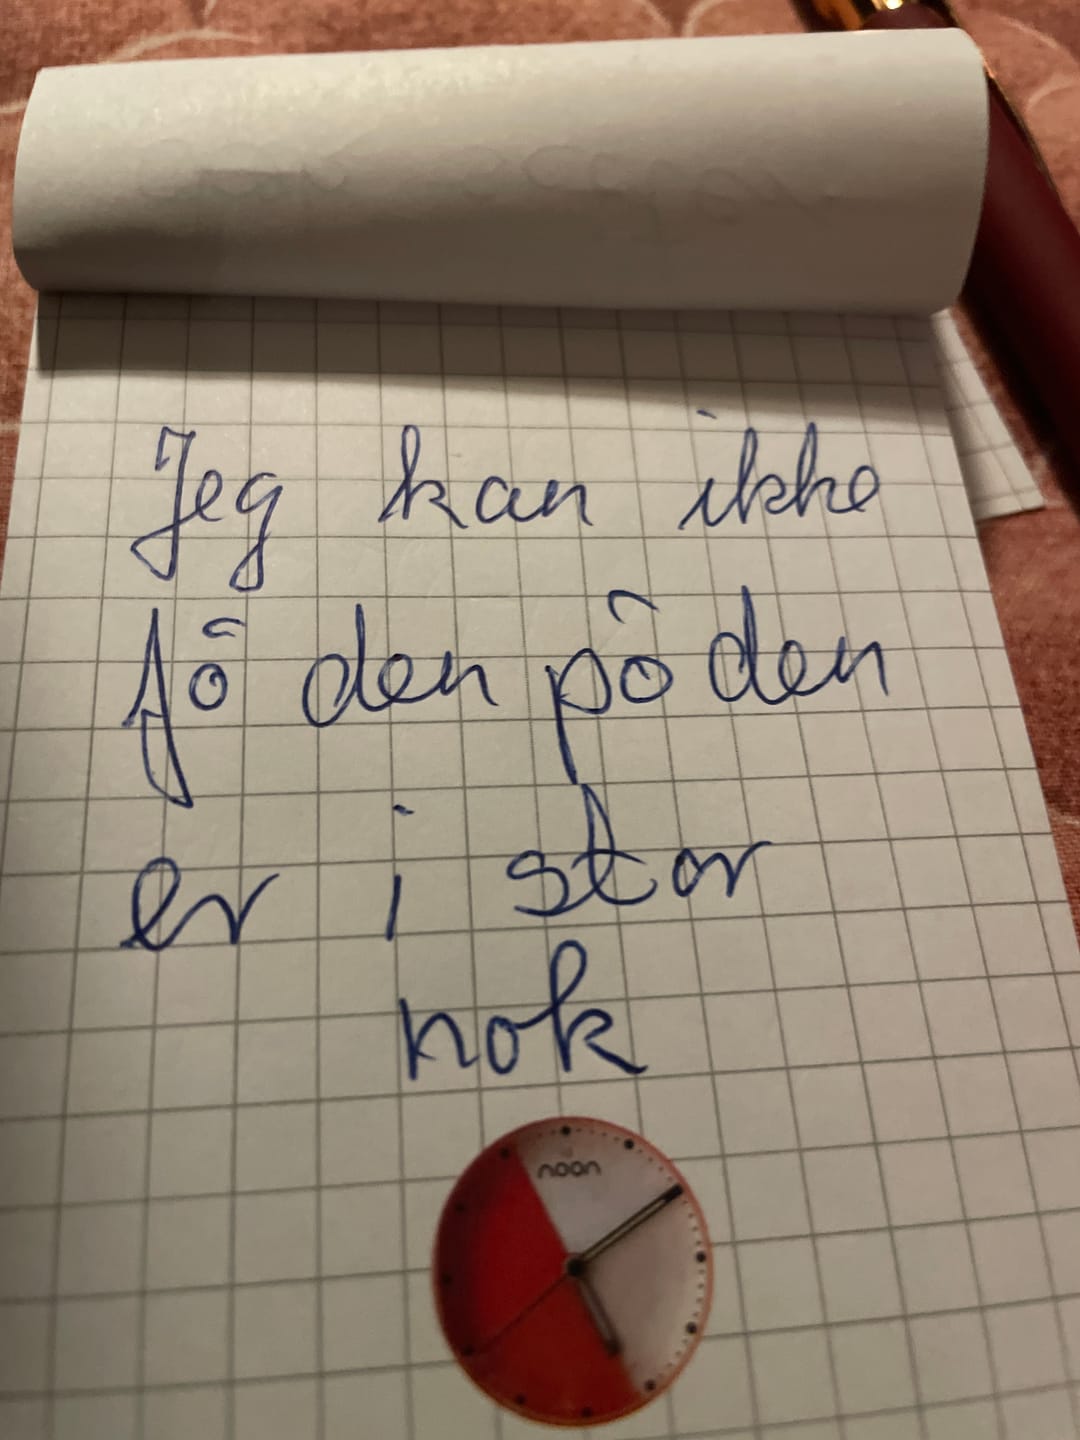 Jeg kan ikke
få den på den
er i stor
nok
noon